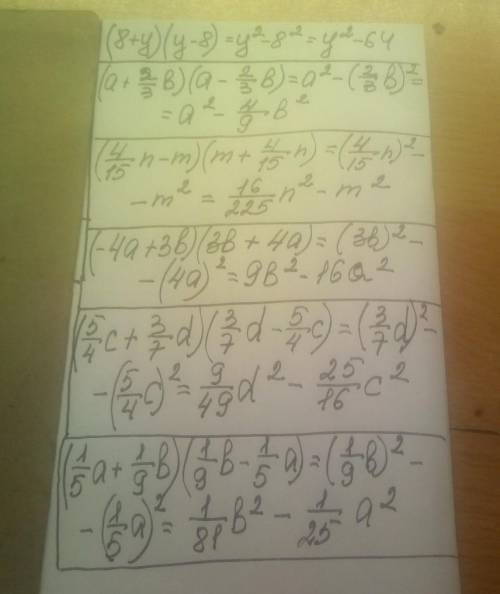 (8+y)(y-8)=y²-8²=y²-64
(a+2/3b)(a-2/3b)=a²-(2/3b)²=
=a²-4/9b²
(4/15n-m)(m+4/15n)=(4/15n)²-
-m²=16/225n²-m²
(-4a+3b)(3b+4a)=(3b)²-
-(4a)²=9b²-16a²
(5/4c+3/7d)(3/7d-5/4c)=(3/7d)²-
-(5/4c)²=9/49d²-25/16c²
(1/5a+1/9b)(1/9b-1/5a)=(1/9b)²-
-(1/5a)²=1/81b²-1/25a²